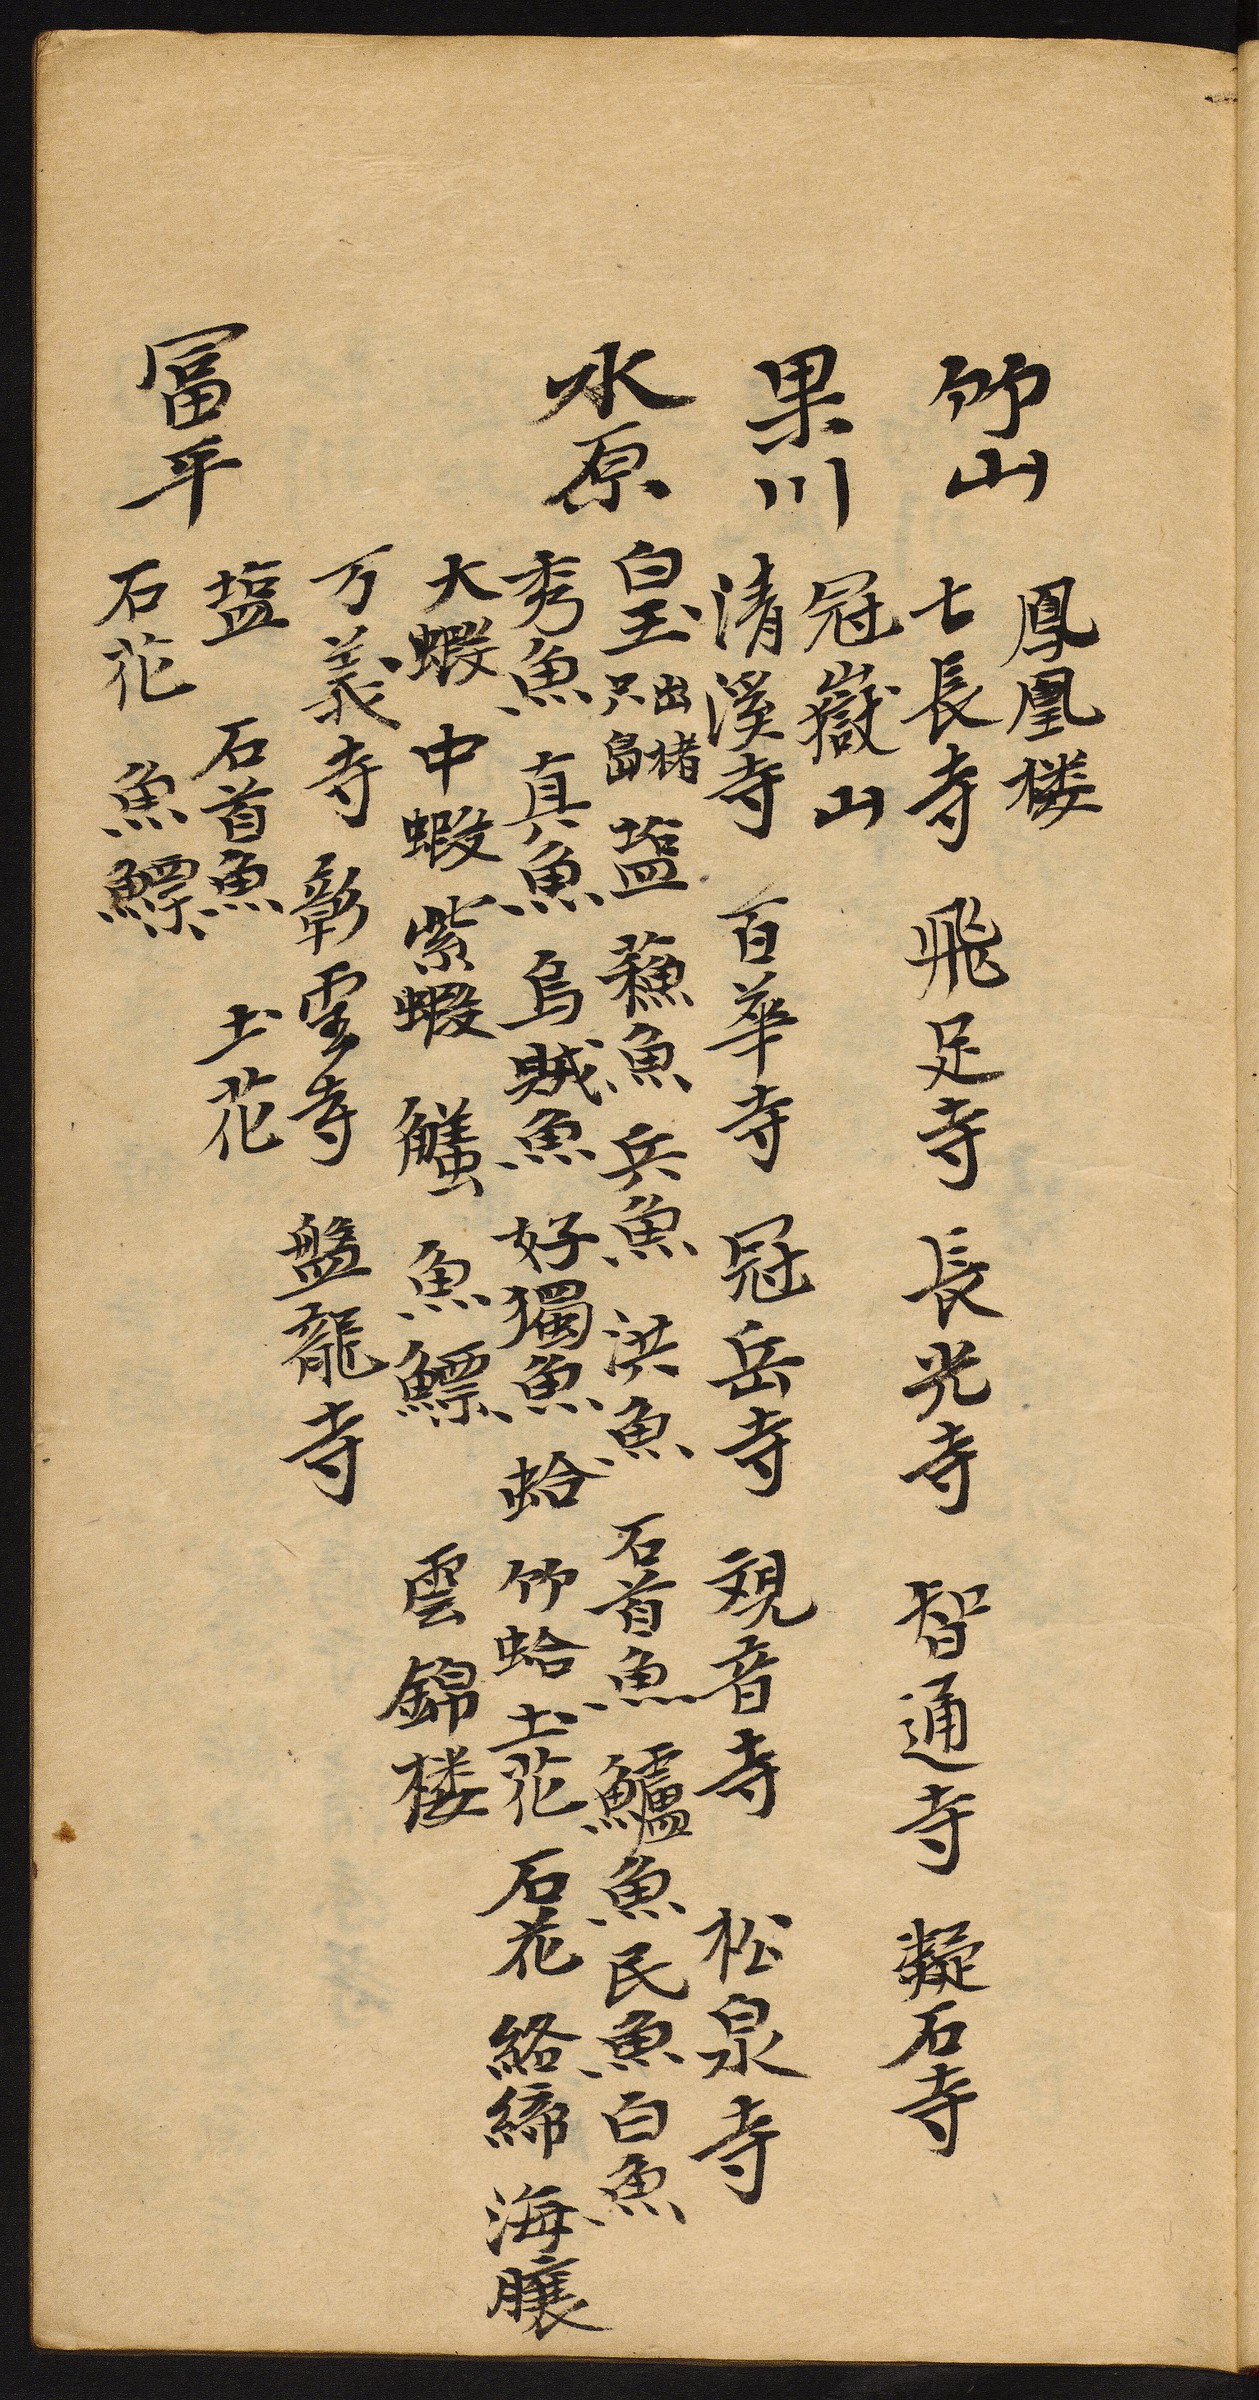 鳳凰楼
竹山 七長寺 飛足寺 長光寺 智通寺 凝石寺
冠嶽山
果川 清溪寺 百華寺 冠岳寺 観音寺 松泉寺
水原 白玉 只出楮島 塩 蘓魚 兵魚 洪魚 石首魚 鱸魚 民魚 白魚
秀魚 真魚 烏賊魚 好獨魚 蛤 竹蛤 土花 石花 絡締 海䑋
大蝦 中蝦 紫蝦 蠏 魚鰾 雲錦楼
万義寺 彰雲寺 盤龍寺
塩 石首魚 土花
冨平 石花 魚鰾